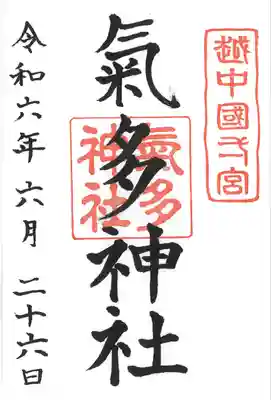 越中國一宮
氣多神社
氣多神社
令和六年六月二十六日